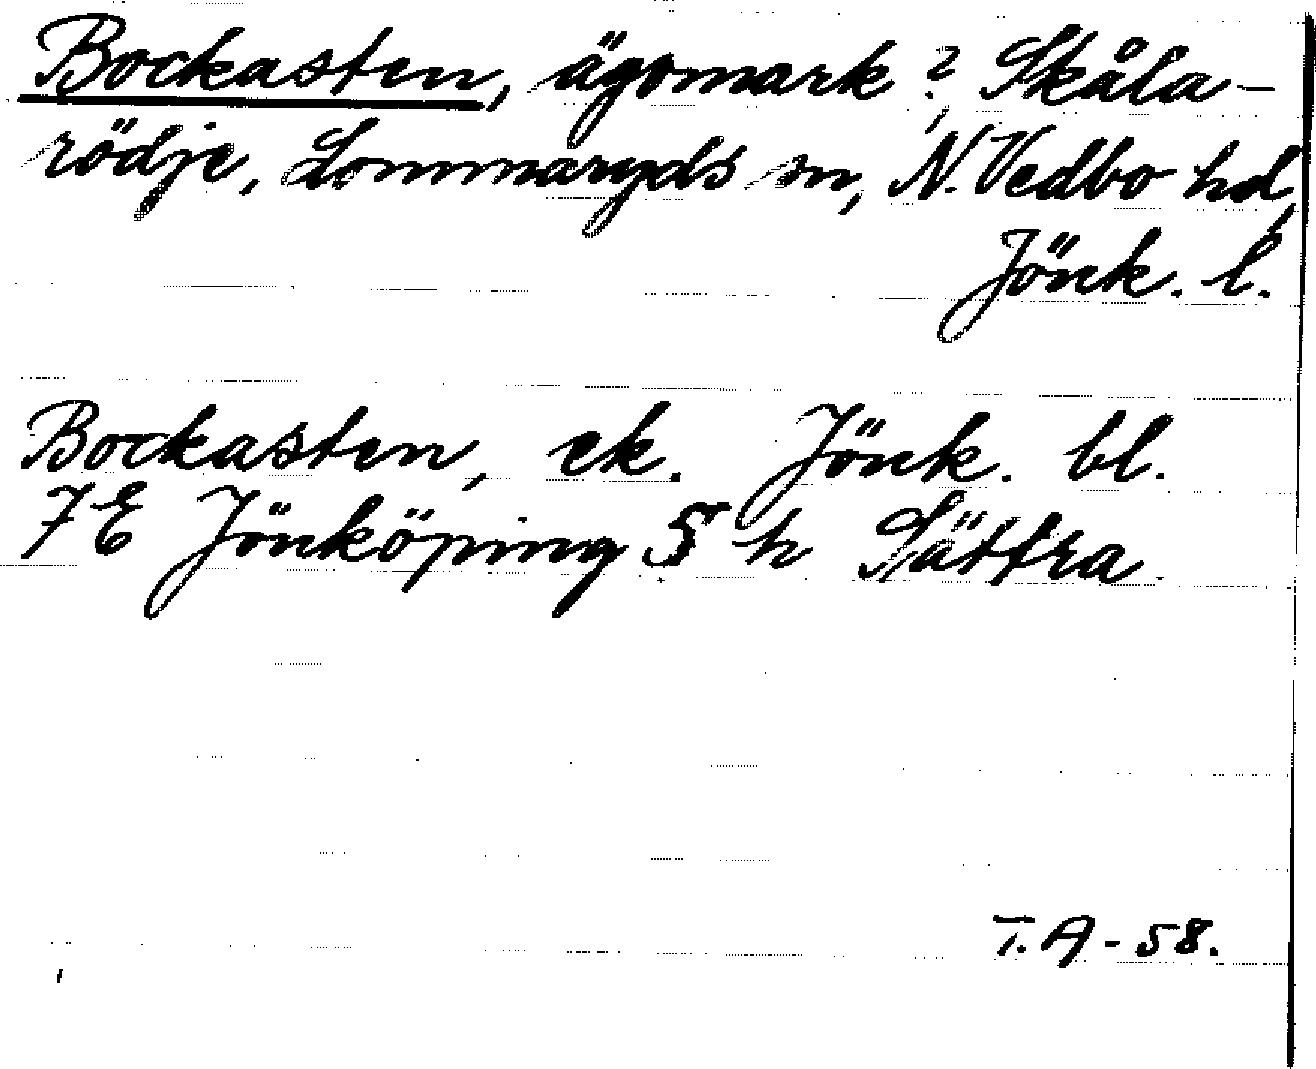 Bockasten, ägomark?, Skåla-
rödje, Lommaryds sn, N. Vedbo hd,
Jönk. l.
Bockasten, ek. Jönk. bl.
7E Jönköping 5 h Sättra
T.A-58.